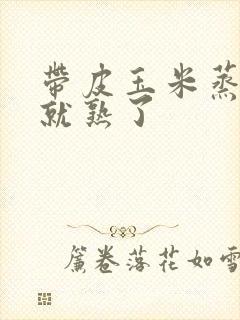 带皮玉米蒸
就熟了
簾卷落花如雪